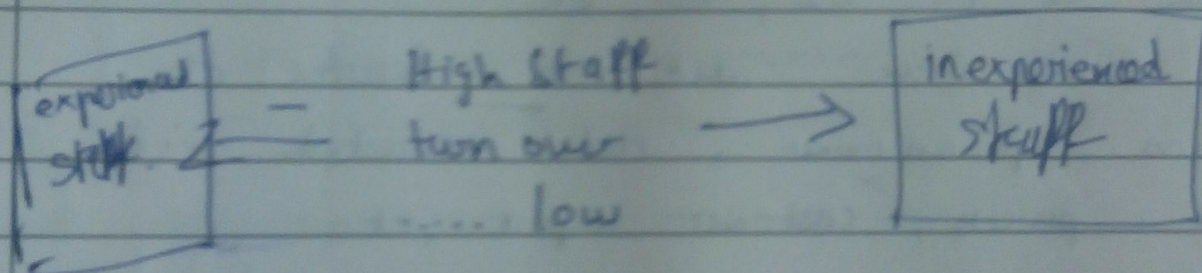 experienced
staff
- High Staff
turn over
..... low
inexperienced
staff